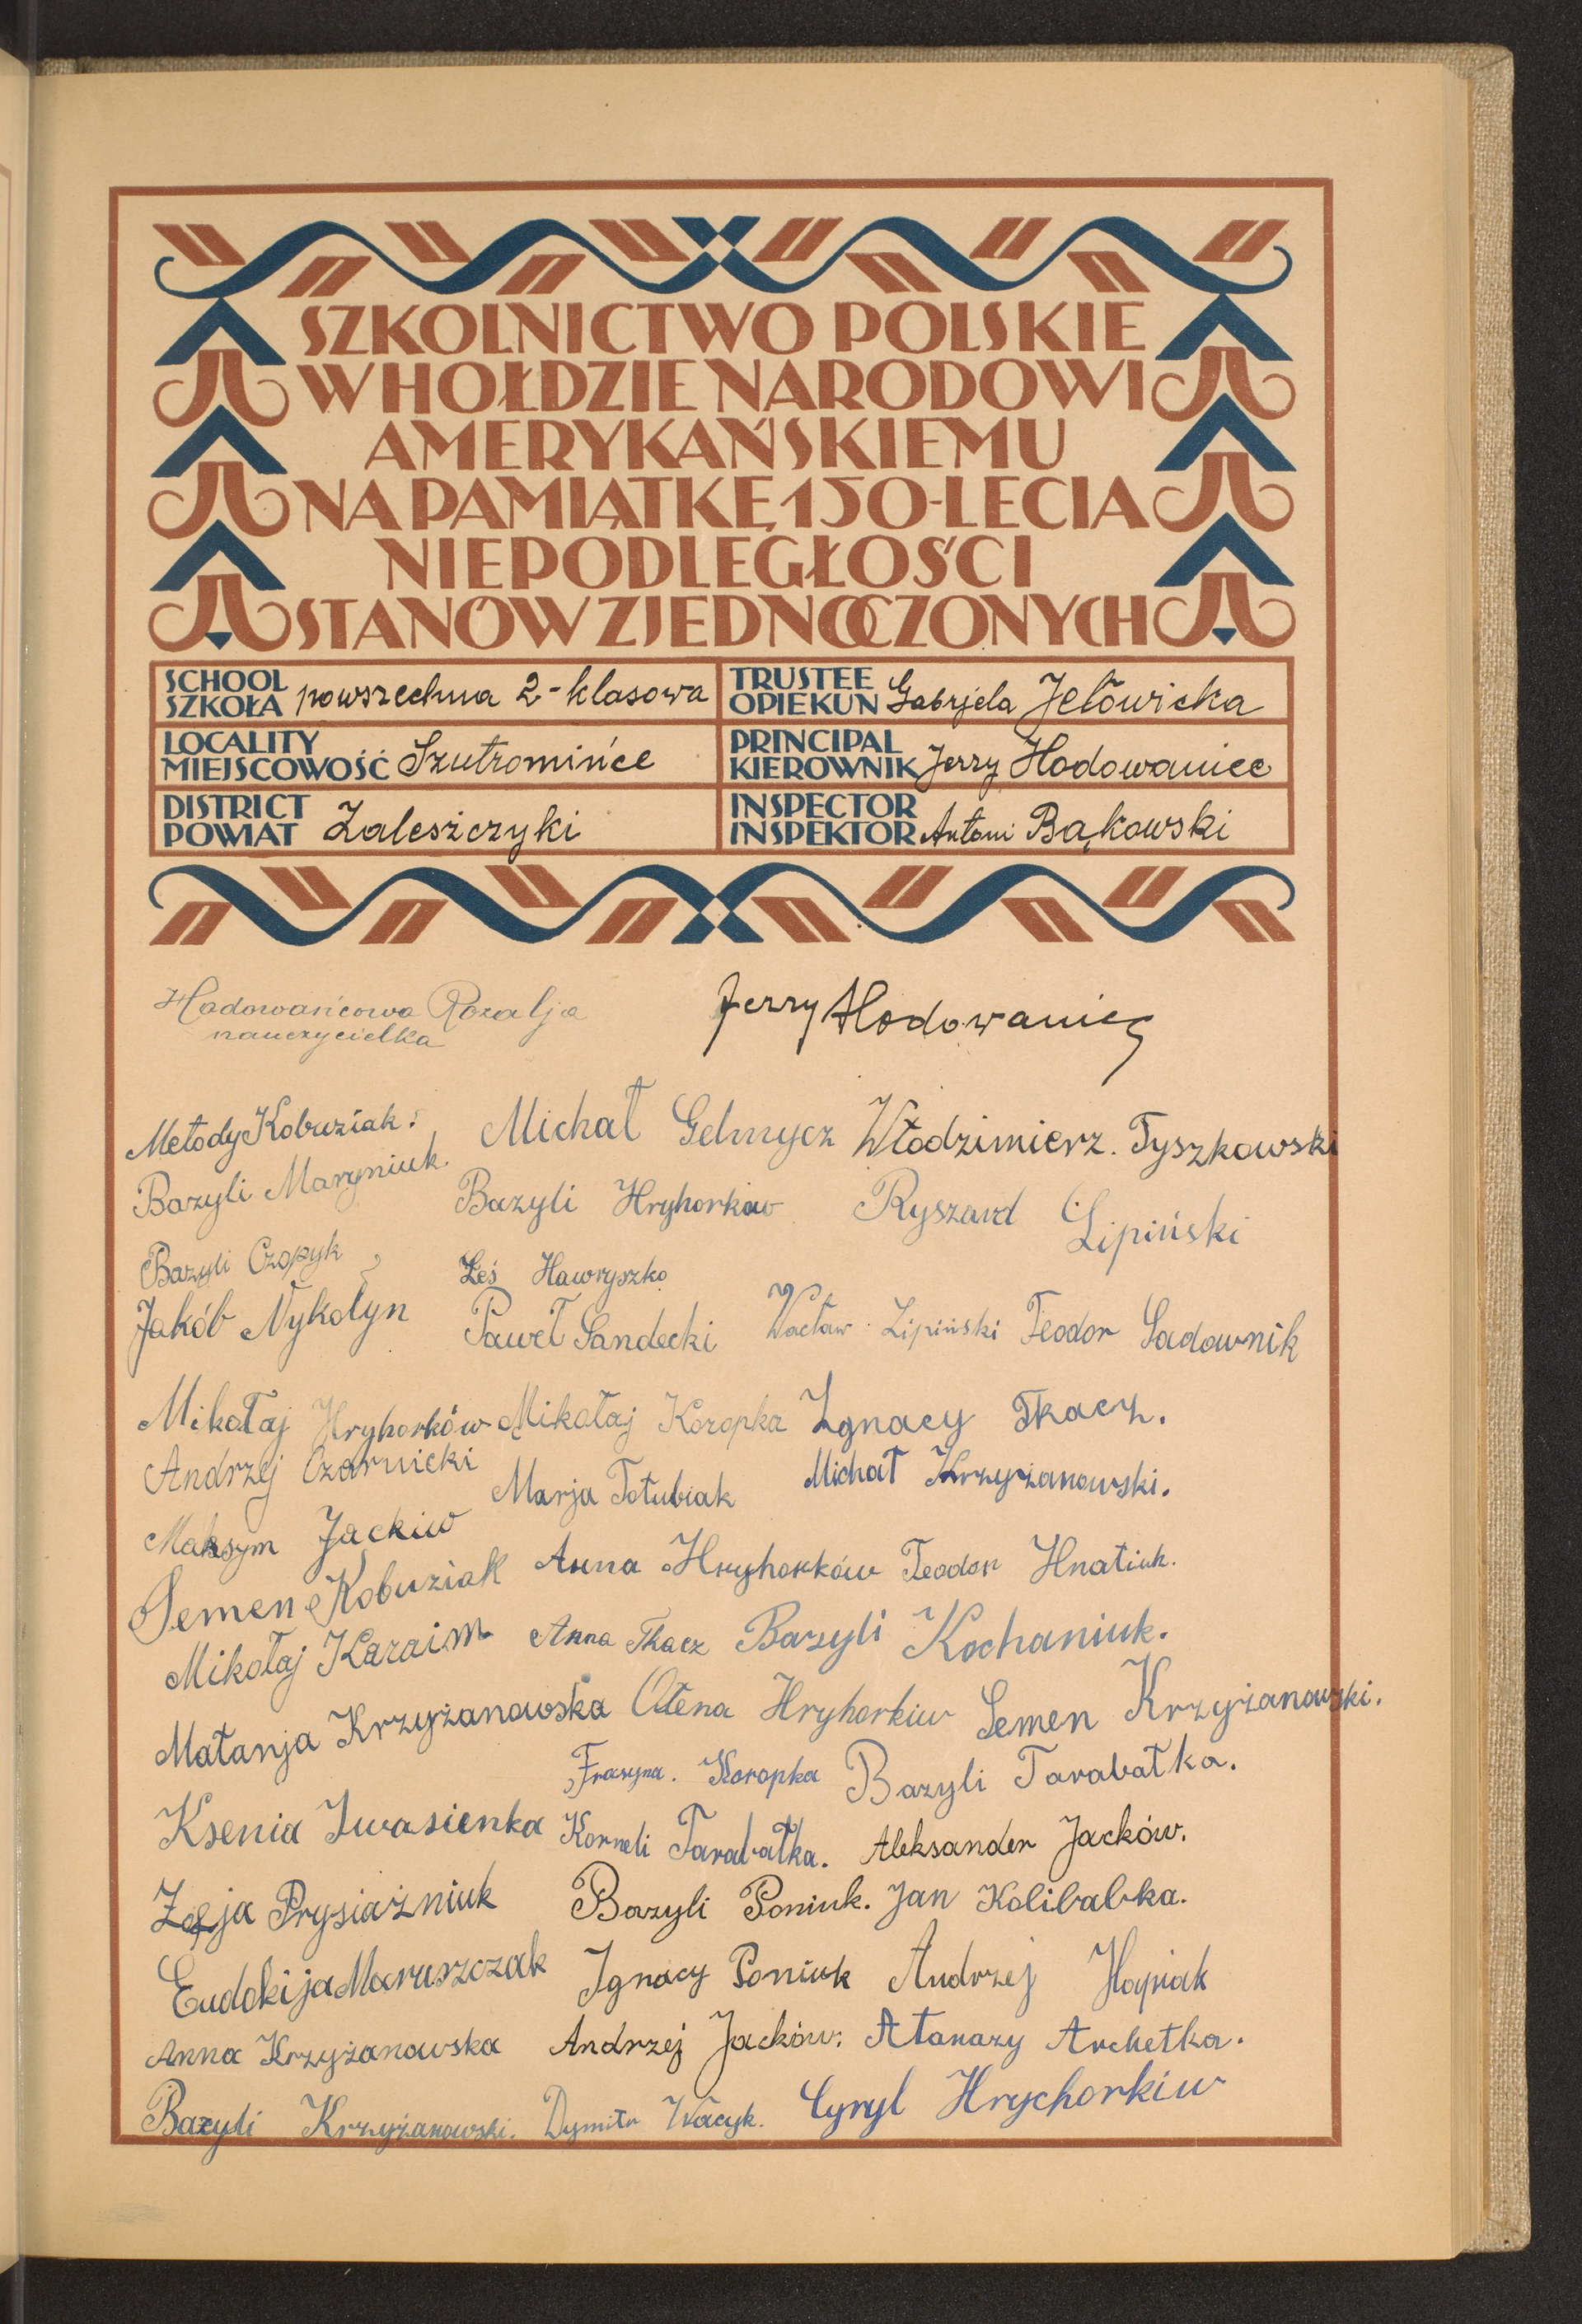 SZKOLNICTWO POLSKIE
W HOŁDZIE NARODOWI
AMERYKAŃSKIEMU
NA PAMIĄTKĘ 150-LECIA
NIEPODLEGŁOŚCI
STANÓW ZJEDNOCZONYCH
SCHOOL
SZKOŁA powszechna 2-klasowa
TRUSTEE
OPIEKUN Gabrjela Jełowicka
LOCALITY
MIEJSCOWOŚĆ Szutromińce
PRINCIPAL
KIEROWNIK Jerzy Hodowaniec
DISTRICT
POWIAT Zaleszczyki
INSPECTOR
INSPEKTOR Antoni Bąkowski
Hodowańcowa Rozalja
nauczycielka
Jerzy Hodowaniec
Metody Kobuziak. Michał Gelmycz Włodzimierz. Tyszkowski
Bazyli Maryniuk Bazyli Hryhorkiw Ryszard Lipiński
Bazyli Czopyk Łeś Hawryszko
Jakób Nykołyn Paweł Sandecki Wacław Lipiński Teodor Sadownik
Mikołaj Hryhorków Mikołaj Koropka Ignacy Tkacz.
Andrzej Czarnicki Marja Tołubiak Michał Krzyżanowski.
Maksym Jackiw
Semen Kobuziak Anna Hryhorków Teodor Hnatiuk.
Mikołaj Karaim Anna Tkacz Bazyli Kochaniuk.
Małanja Krzyżanowska Ołena Hryhorkiw Semen Krzyżanowski.
Frazyna. Koropka Bazyli Tarabałka.
Ksenia Iwasienka Korneli Tarabałka. Aleksander Jacków.
Zofja Prysiażniuk Bazyli Poniuk. Jan Kolibabka.
Eudokija Maruszczak Ignacy Poniuk Andrzej Hapiak
Anna Krzyżanowska Andrzej Jacków. Atanazy Archetka.
Bazyli Krzyżanowski. Dymitr Wacyk. Cyryl Hrychorkiw